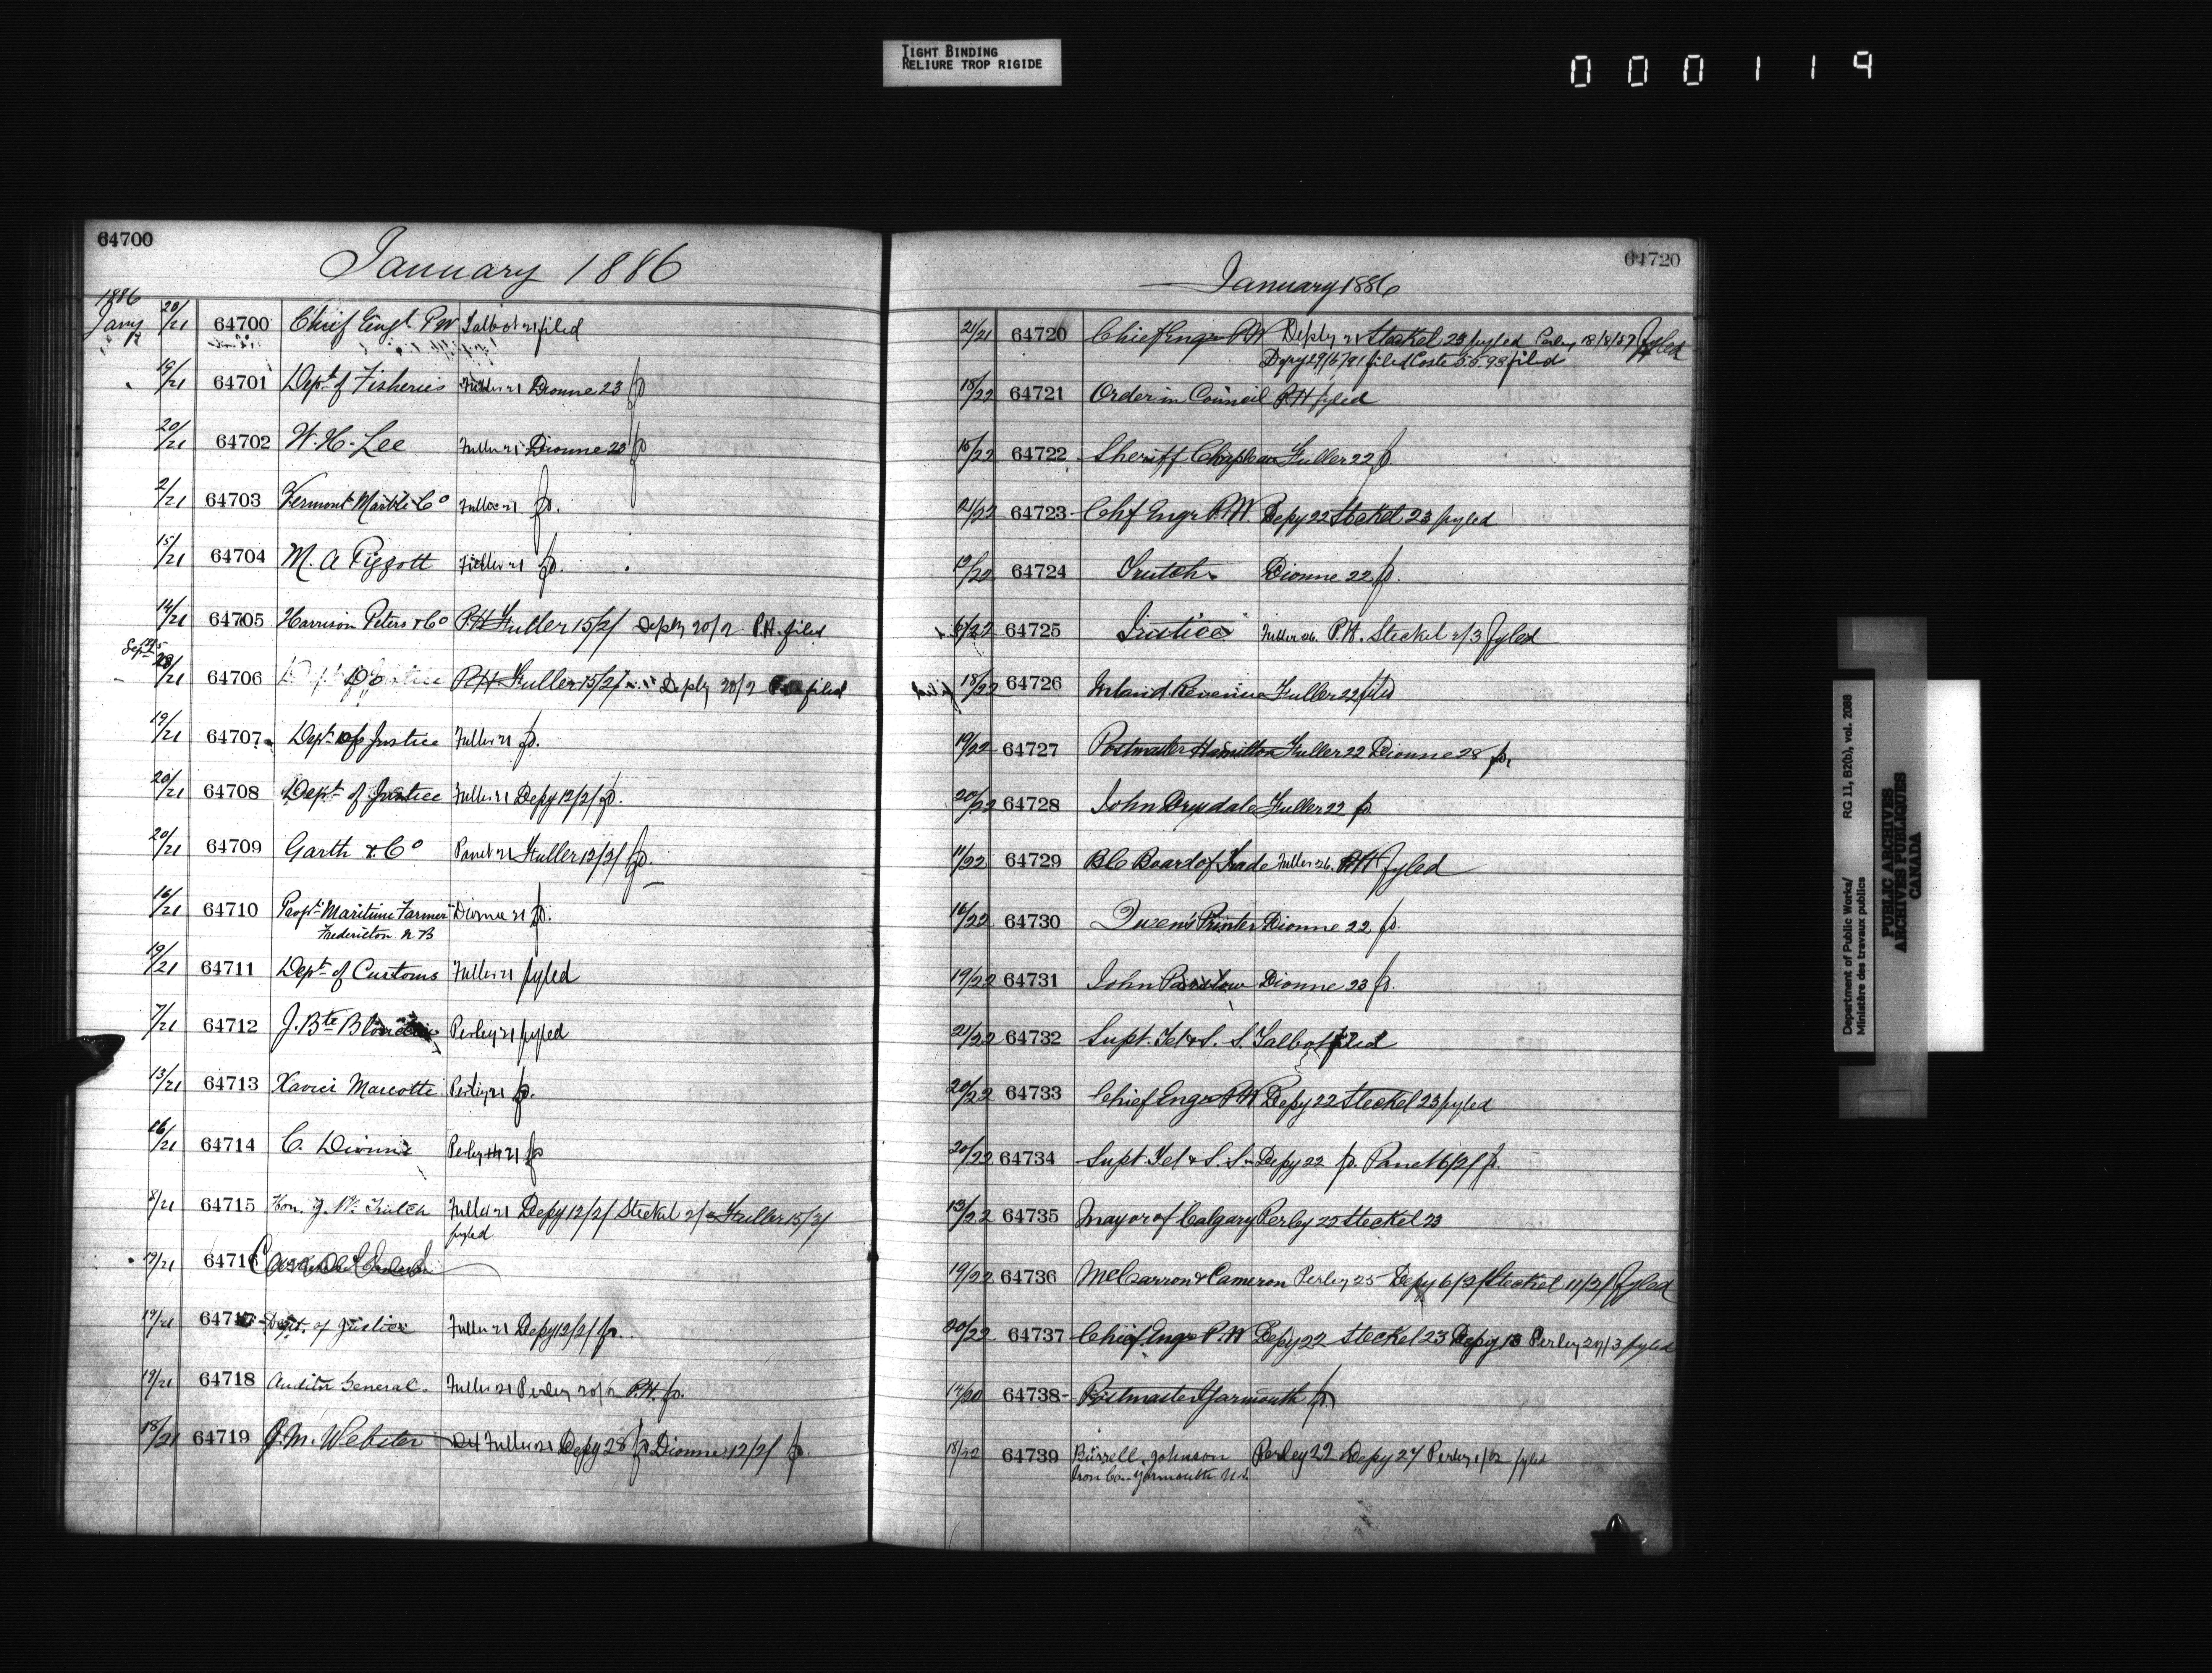 TIGHT BINDING
RELIURE TROP RIGIDE
000119
64700
January 1886
1886
Jany
20/21 64700 Chief Engr. PW Talbot 21 filed
19/21 64701 Dept. of Fisheries Fuller 21 Dionne 23 fo
20/21 64702 W. H. Lee Fuller 21 Dionne 23 fo
2/21 64703 Vermont Marble Co Fuller 21 fo.
15/21 64704 M. A Piggott Fuller 21 fo.
14/21 64705 Harrison Peters & Co P.H Fuller 15/2/ Deply 20/2 P.H. filed
Sept.
/21 64706 P.H Fuller 15/2/ Deply 20/2 filed
19/21 64707 Dept. of Justice Fuller 21 fo.
20/21 64708 Dept. of Justice Fuller 21 Depy 12/2/ fo.
20/21 64709 Garth & Co Panet 21 Fuller 12/2/ fo.
16/21 64710 Propr. Maritime Farmer Dionne 21 fo.
Fredericton N B
19/21 64711 Dept. of Customs Fuller 21 fyled
7/21 64712 J. Bte Perley 21 fyled
13/21 64713 Xavier Marcotte Perley 21 fo.
16/21 64714 C. Dionne Perley 21 fo
8/21 64715 Hon. J. W. Trutch Fuller 21 Depy 12/2/ Steckel 2/3 Fuller 15/3/
fyled
19/21 64716
19/21 64717 Dept. of Justice Fuller 21 Depy 12/2/ fo.
19/21 64718 Auditor General. Fuller 21 Perley 20/2 P.H. fo.
18/21 64719 J. M. Webster Fuller 21 Depy 28 fo Dionne 12/2/ fo.
64720
January 1886
21/21 64720 Chief Engr P.W Deply 21 Steckel 23 fyled Perley 18/8/87 fyled
Depy 29/6/91 filed Coste 5.5.93 filed
18/22 64721 Order in Council P.H fyled
15/22 64722 Sheriff Chapleau Fuller 22 fo.
21/22 64723 Chf Engr P.W. Depy 22 Steckel 23 fyled
19/22 64724 Trutch Dionne 22 fo.
6/22 64725 Justice Fuller 26. P.H. Steckel 2/3 fyled
18/22 64726 Inland Revenue Fuller 22 filed
19/22 64727 Postmaster Hamilton Fuller 22 Dionne 28 fo.
20/22 64728 John Drysdale Fuller 22 fo.
11/22 64729 BC Board of Trade Fuller 26. P.H fyled
16/22 64730 Queen's Printer Dionne 22 fo.
19/22 64731 John Dionne 23 fo.
21/22 64732 Supt. Tel & S. S. Talbot filed
20/22 64733 Chief Engr P.W Depy 22 Steckel 23 fyled
20/22 64734 Supt. Tel & S. S. Depy 22 fo. Panet 16/2/ fo.
13/22 64735 Mayor of Calgary Perley 22 Steckel 23
19/22 64736 McCarron & Cameron Perley 25 Depy 6/2/ Steckel 11/2/ fyled
20/22 64737 Chief Engr P.W Depy 22 Steckel 23 Depy 13 Perley 20/3 fyled
14/20 64738 Postmaster Yarmouth fo.
18/22 64739 Burrell, Johnson Perley 22 Depy 27 Perley 1/2 fyled
Iron Co. Yarmouth N.S.
Department of Public Works/ RG 11, B2(b), vol. 2088
Ministère des travaux publics
PUBLIC ARCHIVES
ARCHIVES PUBLIQUES
CANADA